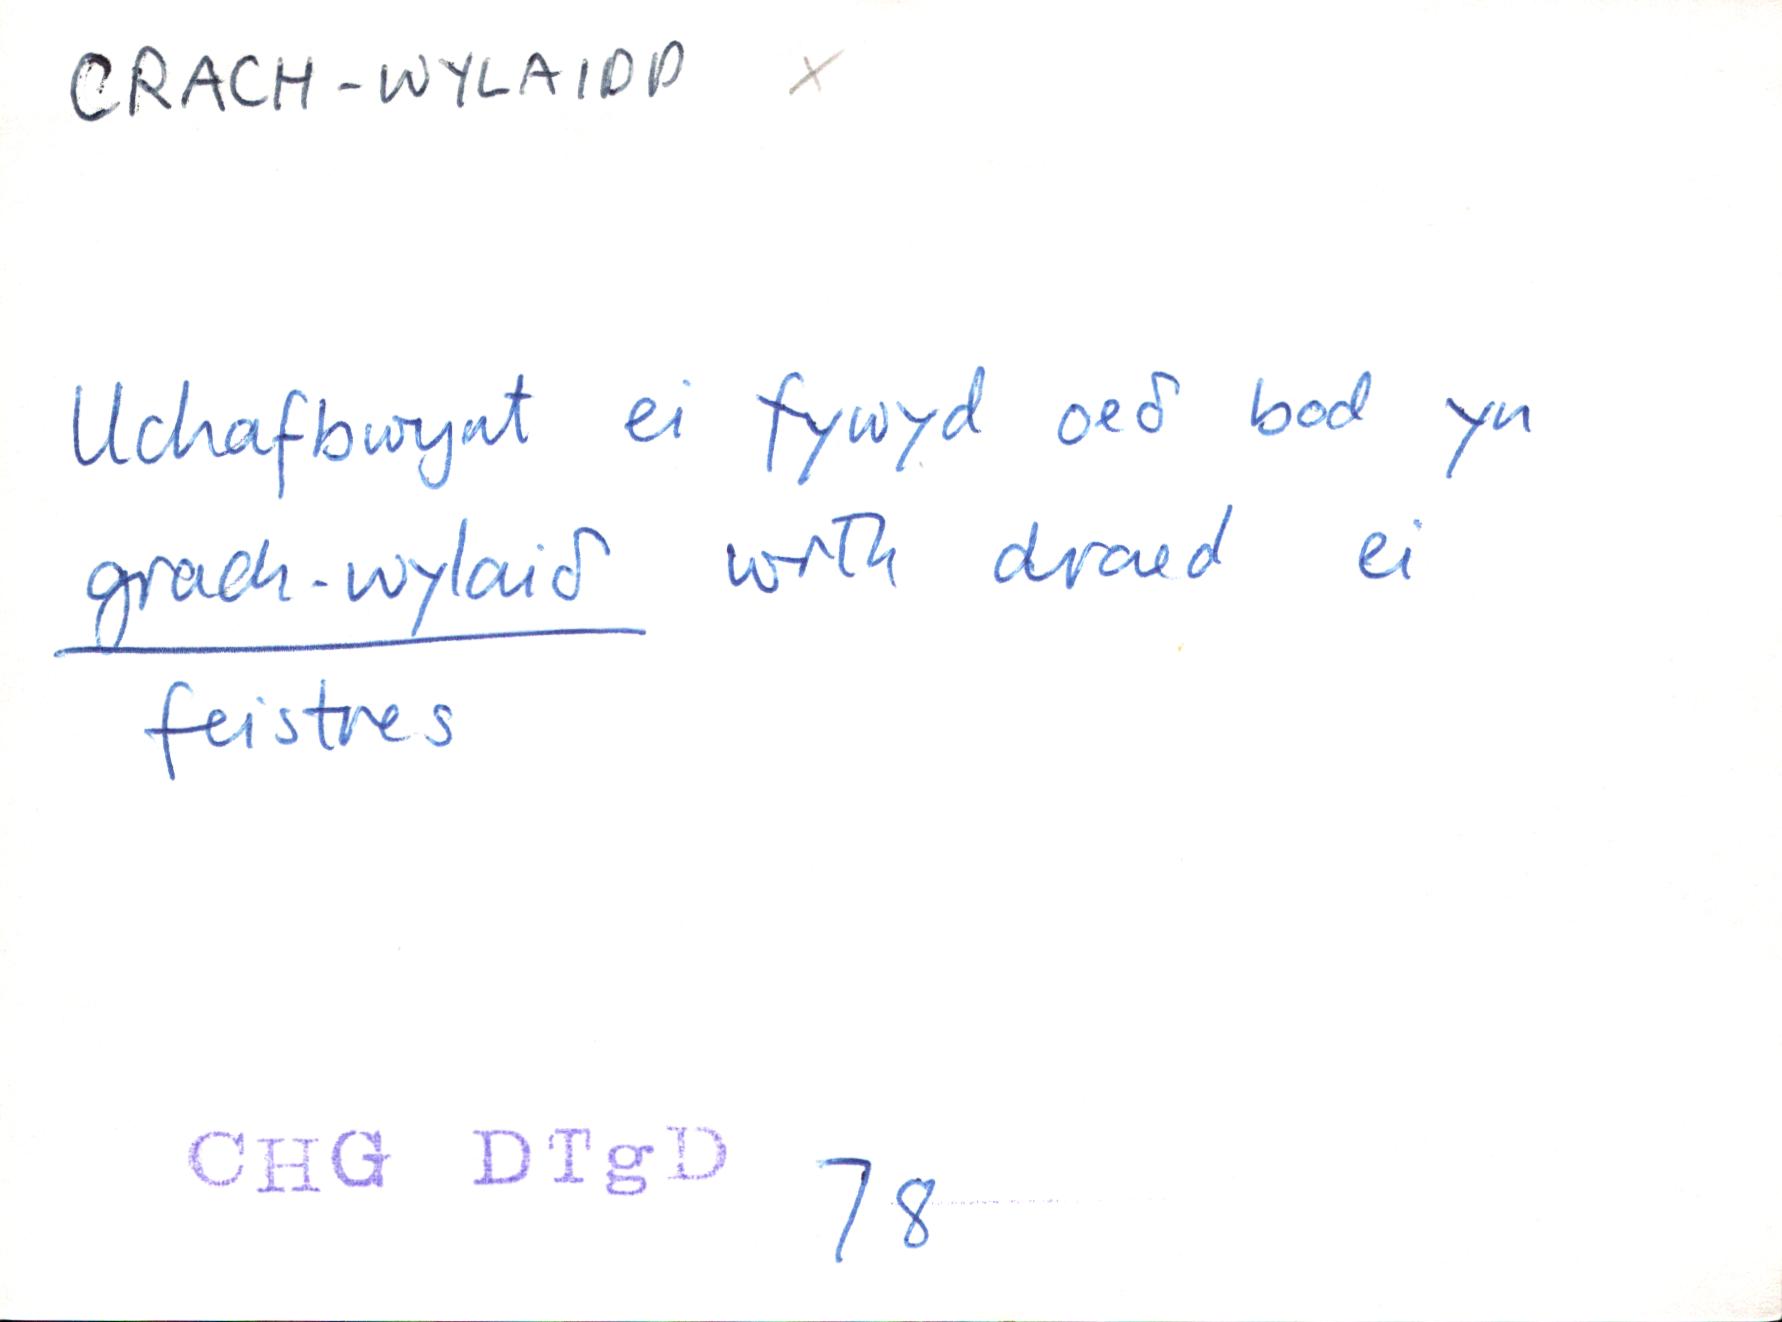 CRACH-WYLAIDD x
Uchafbwynt ei fywyd oeδ bod yn
grach-wylaiδ wrth draed ei
feistres
CHG DTgD 78